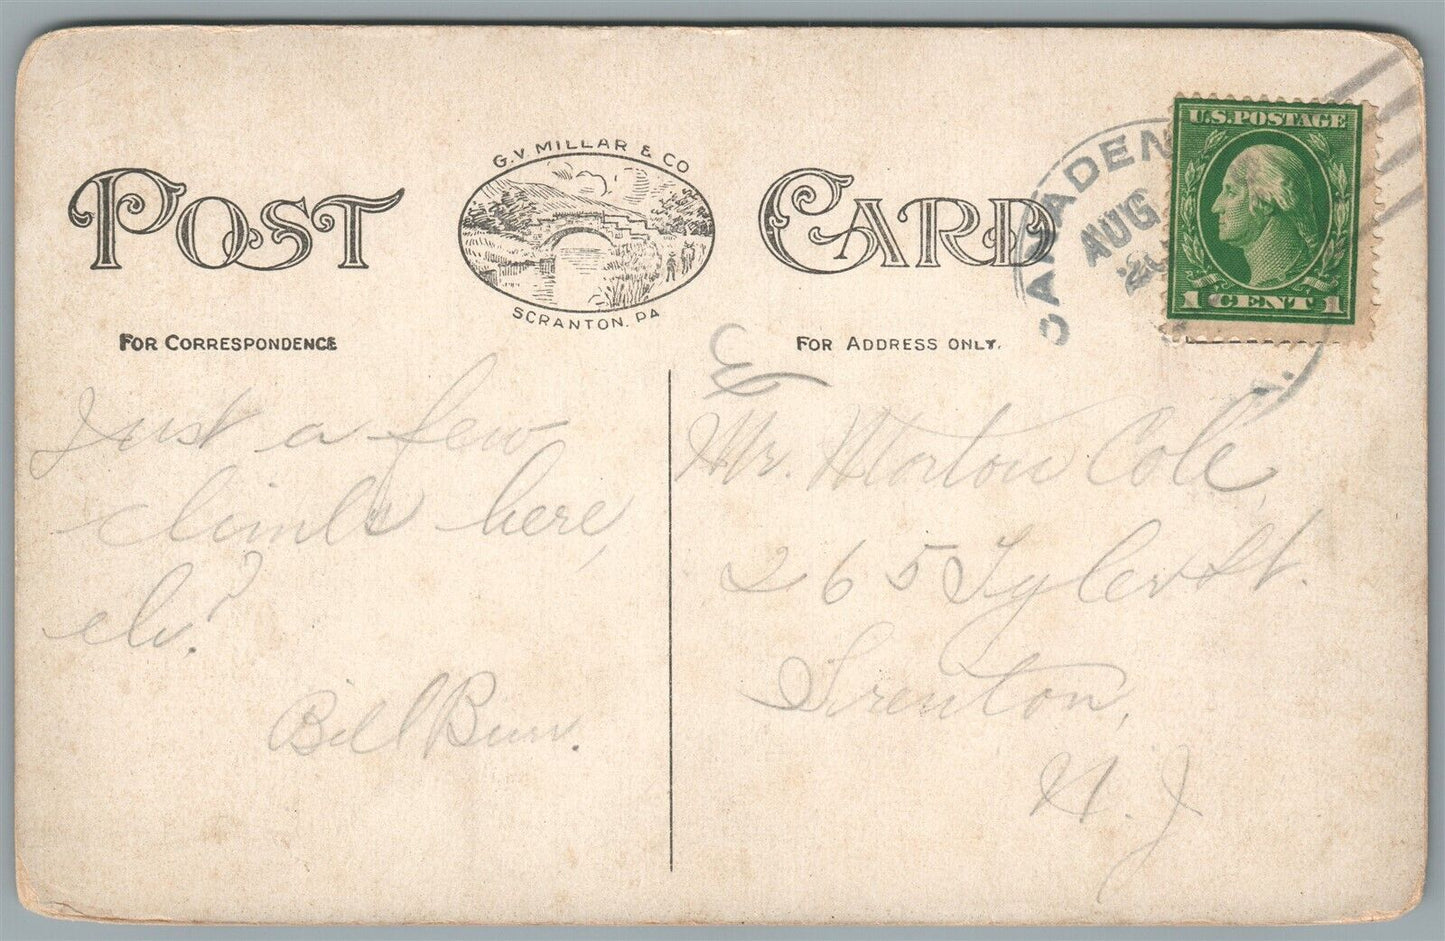 G.V. MILLAR & CO
POST CARD
SCRANTON, PA
FOR CORRESPONDENCE
FOR ADDRESS ONLY.
U.S. POSTAGE
1 CENT 1
AUG
Just a few
climbs here,
eh?
Bill
Mr. Morton Cole,
265 Tyler St.
Trenton,
N. J.